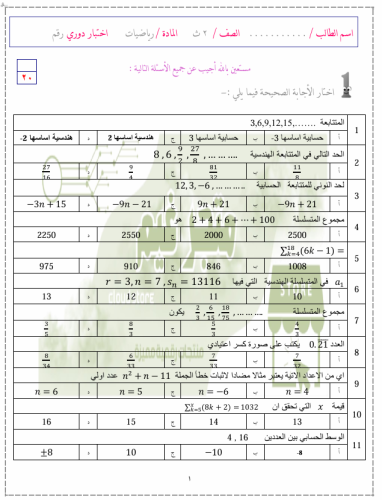 اسم الطالب / ............ الصف / ٢ ث المادة / رياضيات اختبار دوري رقم
مستعين بالله أجيب عن جميع الأسئلة التالية :
٢٠
1 اختار الأجابة الصحيحة فيما يلي :-
1 المتتابعة 3,6,9,12,15,.......
أ حسابية اساسها 3- ب حسابية اساسها 3 ج هندسية اساسها 2 د هندسية اساسها 2-
2 الحد التالي في المتتابعة الهندسية 8 , 6 , 9/2 , 27/8 , ... ... ....
أ 11/8 ب 81/32 ج 9/4 د 27/16
3 الحد النوني للمتتابعة الحسابية 12, 3, −6 , ... ... ....
أ −9n + 21 ب 9n + 21 ج −9n − 21 د −3n + 15
4 مجموع المتسلسلة 2 + 4 + 6 + ⋯ + 100 هو
أ 2500 ب 2000 ج 2550 د 2250
5 ∑¹⁸ₖ₌₄(6k − 1) =
أ 1008 ب 846 ج 910 د 975
6 a₁ في المتسلسلة الهندسية التي فيها r = 3, n = 7 , sₙ = 13116
أ 10 ب 11 ج 12 د 13
7 مجموع المتسلسلة 2/3 , 6/15 , 18/75 , ... ... .... يكون
أ 4/3 ب 5/3 ج 8/3 د 3/5
8 العدد 0.21 يكتب على صورة كسر اعتيادي
أ 7/32 ب 7/33 ج 6/33 د 8/34
9 اي من الاعداد الاتية يعتبر مثالا مضادا لاثبات خطأ الجملة n² + n − 11 عدد اولي
أ n = 4 ب n = −6 ج n = 5 د n = 6
10 قيمة x التي تحقق ان ∑ˣₖ₌₅(8k + 2) = 1032
أ 13 ب 14 ج 15 د 16
11 الوسط الحسابي بين العددين 4 , 16
أ -8 ب −10 ج 10 د ±8
١